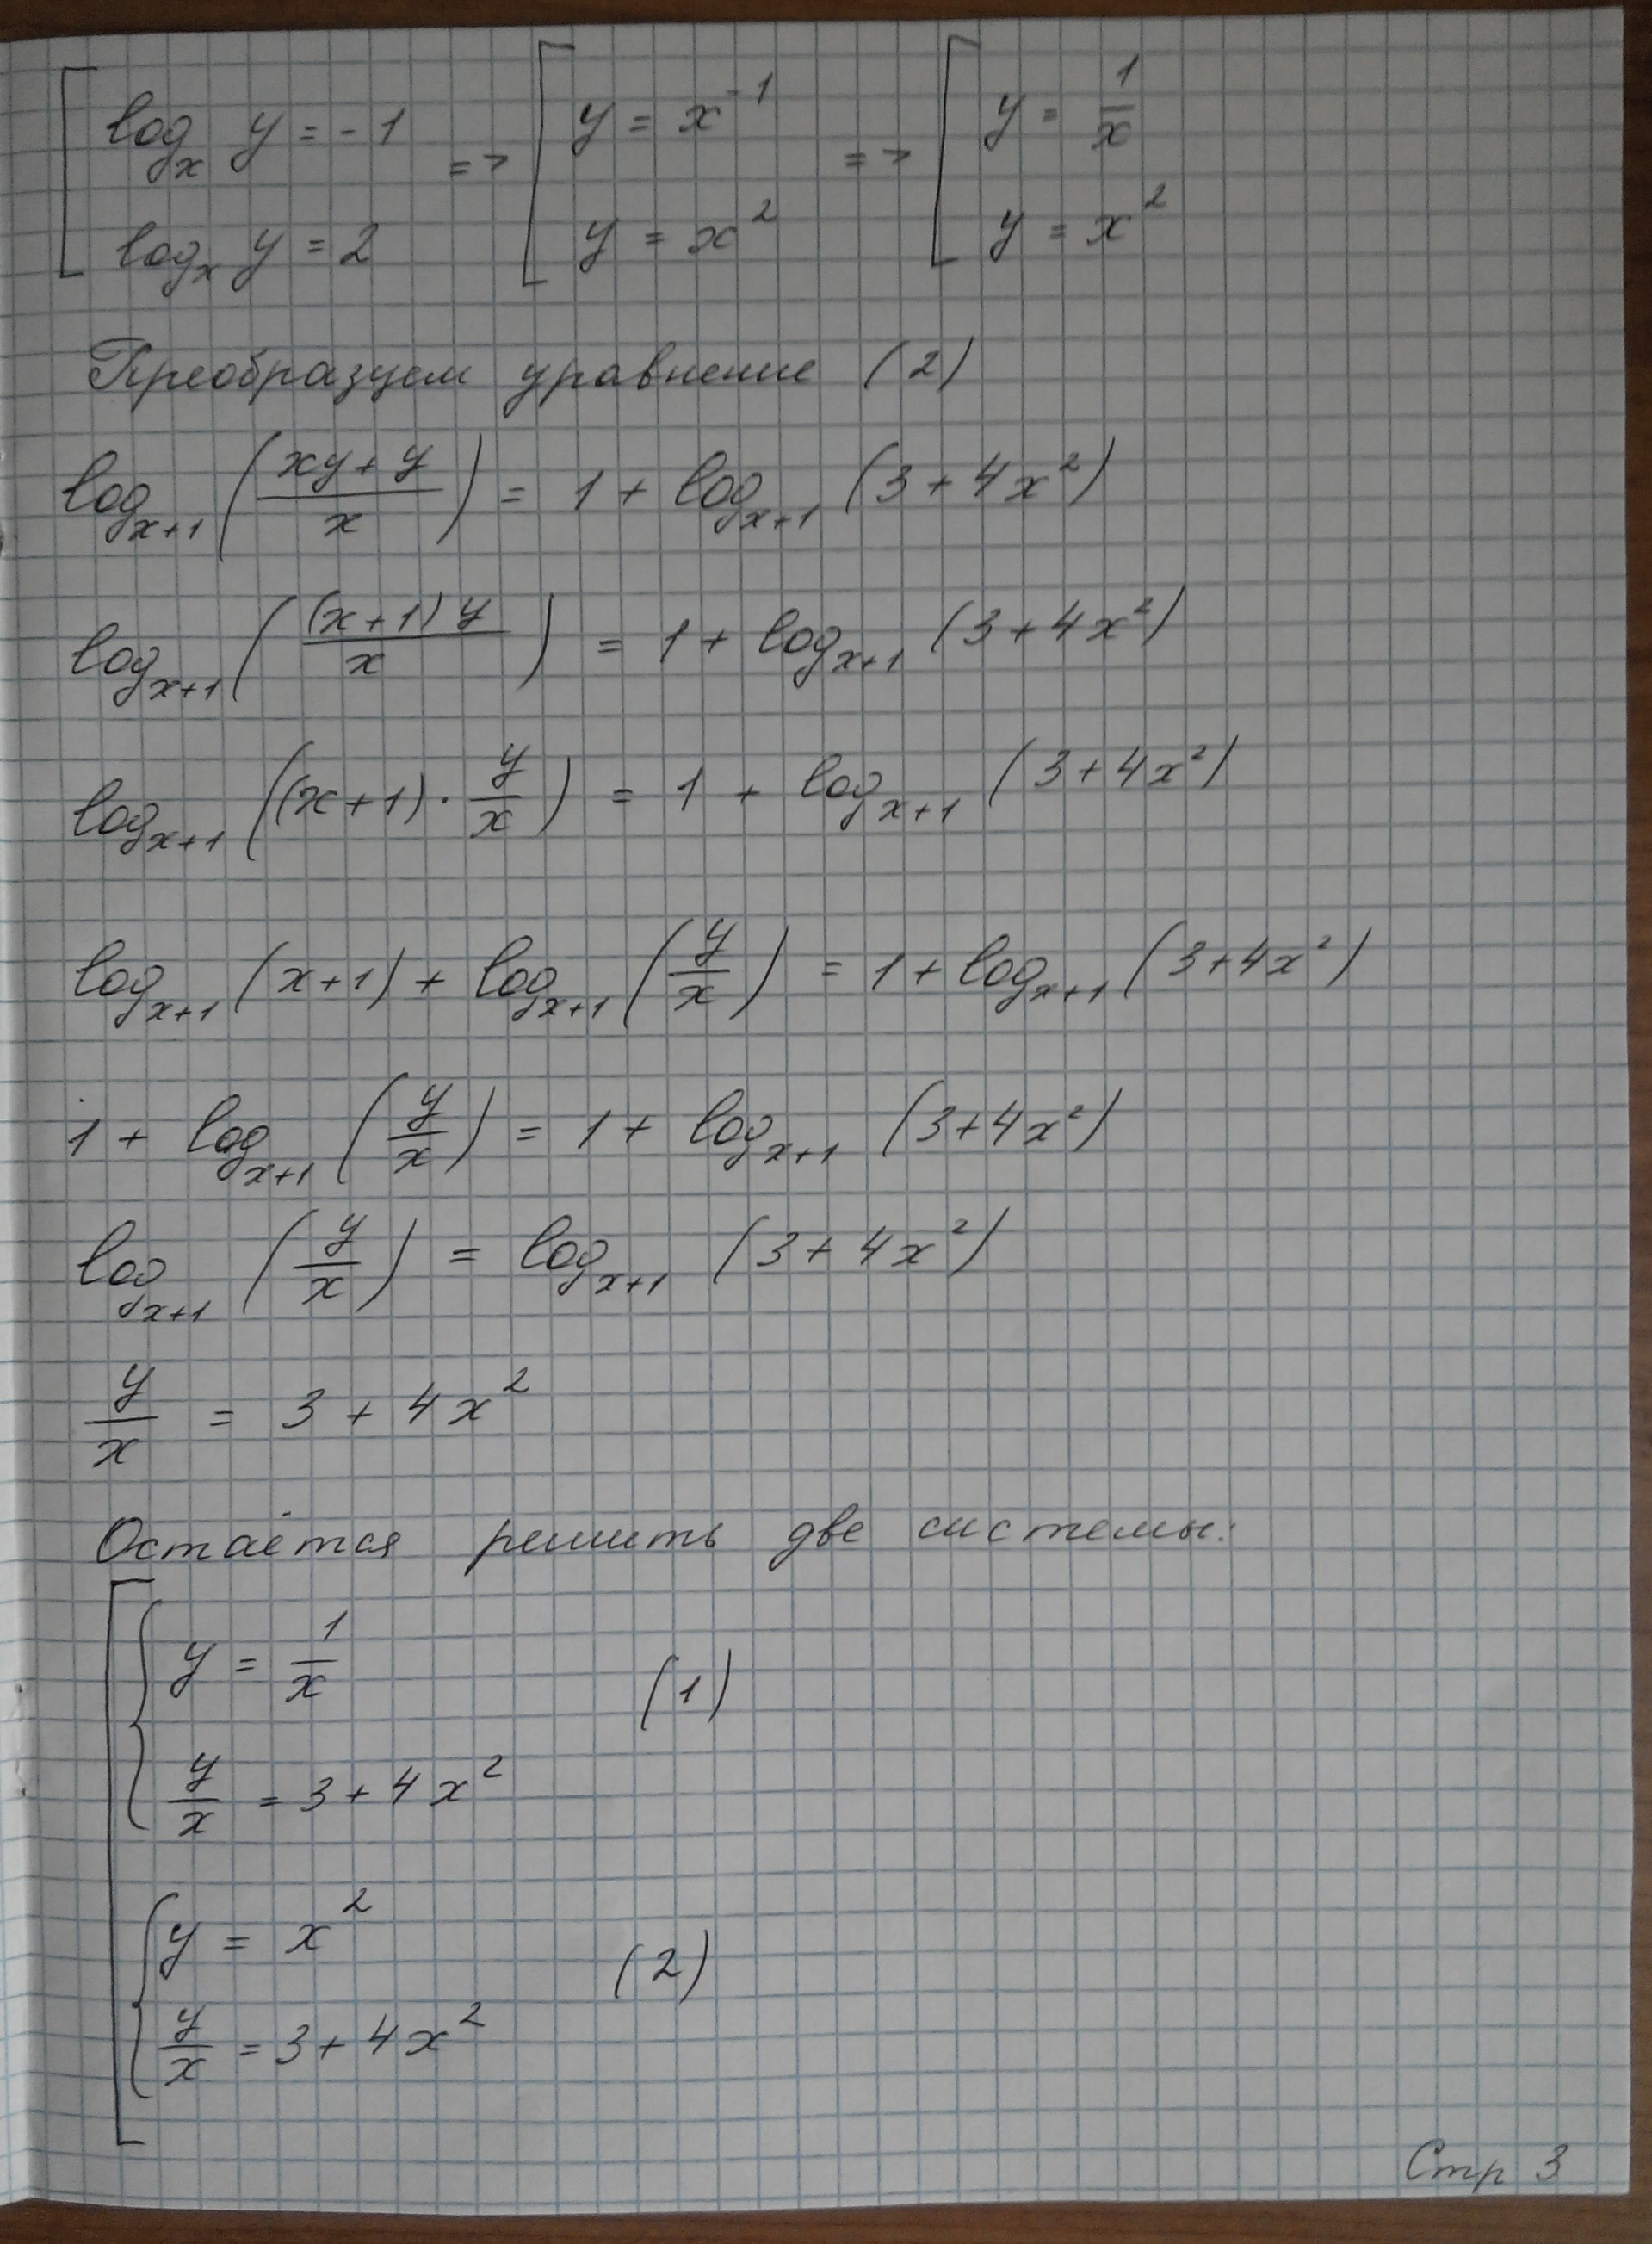 [ log_x y = -1 => [ y = x^-1 => [ y = 1/x
log_x y = 2 y = x^2 y = x^2
Преобразуем уравнение (2)
log_{x+1} ((xy+y)/x) = 1 + log_{x+1} (3+4x^2)
log_{x+1} ((x+1)y/x) = 1 + log_{x+1} (3+4x^2)
log_{x+1} ((x+1) · y/x) = 1 + log_{x+1} (3+4x^2)
log_{x+1} (x+1) + log_{x+1} (y/x) = 1 + log_{x+1} (3+4x^2)
1 + log_{x+1} (y/x) = 1 + log_{x+1} (3+4x^2)
log_{x+1} (y/x) = log_{x+1} (3+4x^2)
y/x = 3 + 4x^2
Остаётся решить две системы:
[ { y = 1/x (1)
y/x = 3 + 4x^2
{ y = x^2 (2)
y/x = 3 + 4x^2
Стр 3